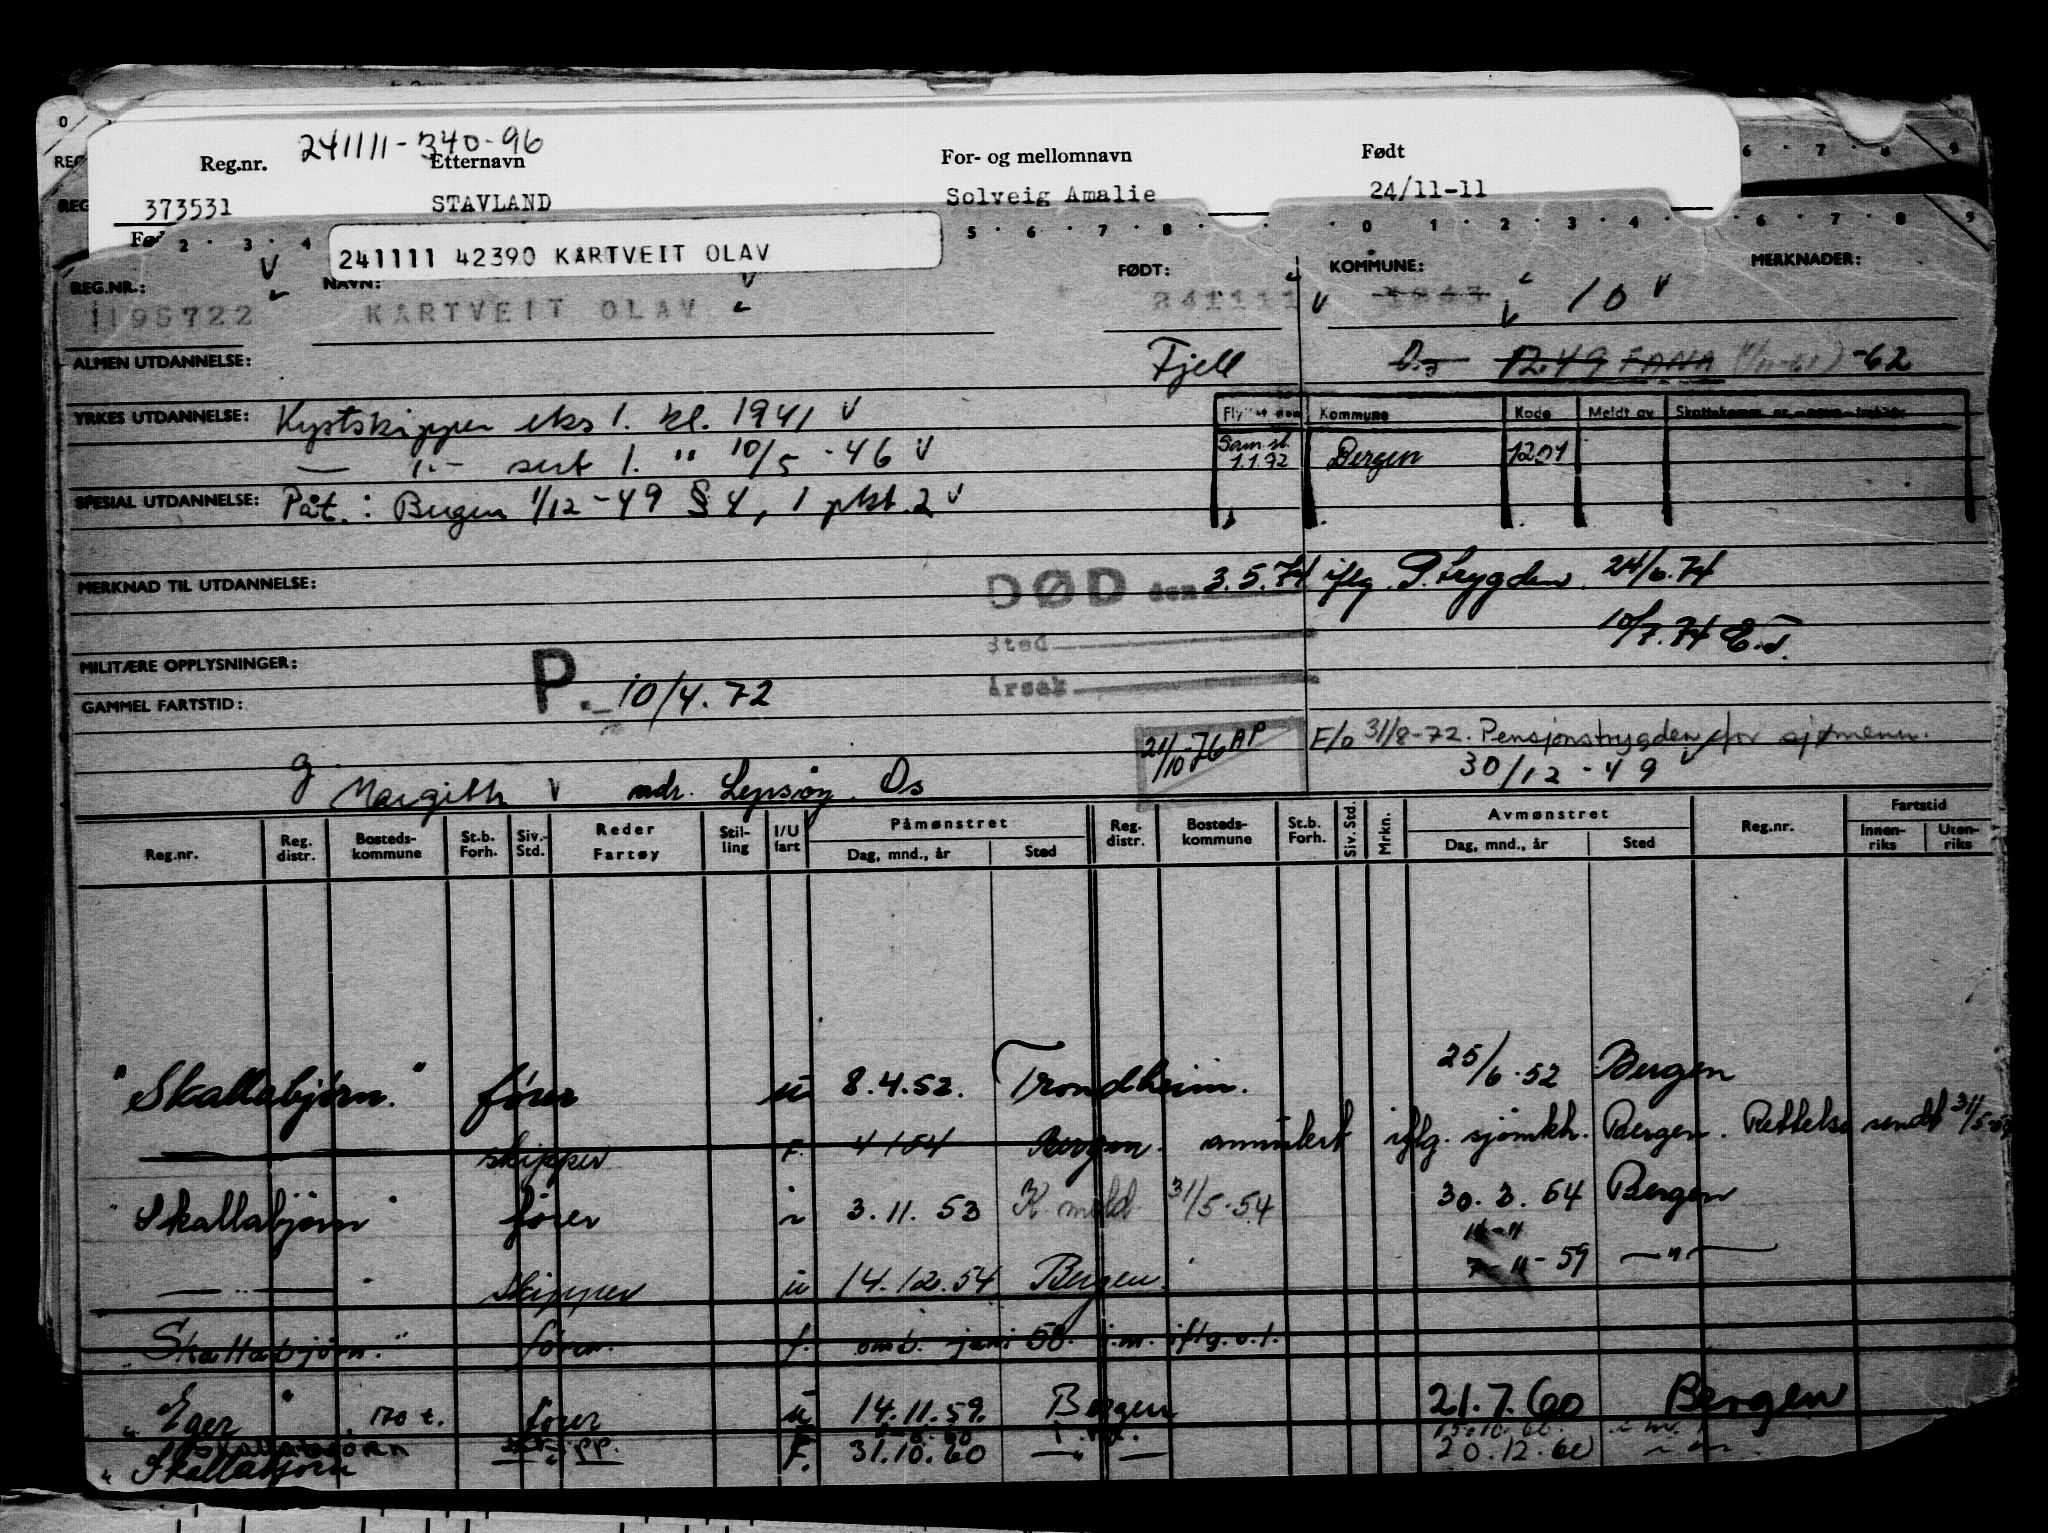 241111-340-96
Reg.nr. Etternavn For- og mellomnavn Født
373531 STAVLAND Solveig Amalie 24/11-11
241111 42390 KARTVEIT OLAV
REG.NR.: NAVN: FØDT: KOMMUNE: MERKNADER:
1195722 KARTVEIT OLAV 241111 10
ALMEN UTDANNELSE: Fjell Os 1249 FANA -62
YRKES UTDANNELSE: Kystskipper eks 1. kl. 1941
Kommune Kode Meldt av
— " — sert 1. " 10/5 -46
Sam.sl. 1.1.72 Bergen 1201
SPESIAL UTDANNELSE: Påt.: Bergen 1/12-49 § 4, 1 pkt. 2
MERKNAD TIL UTDANNELSE: DØD den 3.5.74 iflg. P.trygden 24/6.74
Sted 10/7.74 E.T.
MILITÆRE OPPLYSNINGER:
Årsak
P. 10/4.72
GAMMEL FARTSTID:
21/10-76 AP
E/o 31/8-72. Pensjonstrygden for sjømenn.
30/12-49
g. Margith adr. Lepsøy Os
Reg.nr. Reg. distr. Bosteds-kommune St.b. Forh. Siv.-Std. Reder Fartøy Stil-ling I/U fart Påmønstret Dag, mnd., år Sted Reg. distr. Bosteds-kommune St.b. Forh. Siv. Std. Mrkn. Avmønstret Dag, mnd., år Sted Reg.nr. Fartstid Innen-riks Uten-riks
"Skallabjørn." fører u 8.4.52. Trondheim. 25/6.52 Bergen
skipper F. 4/1 54 Bergen. annulert iflg. sjømkh. Bergen. Rettelse sendt 31/5-54
"Skallabjørn" fører i 3.11.53 K. meld 31/5-54 30.3.54 Bergen
— " — skipper u 14.12.54 Bergen. 7-11-59 — " —
"Skallabjørn." fører. f. omb. juni 58. i.m. iflg. v.t.
"Eger" 170 t. fører u 14.11.59. Bergen 21.7.60 Bergen
"Skallabjørn F. 31.10.60 — " — 20.12.60 — " —